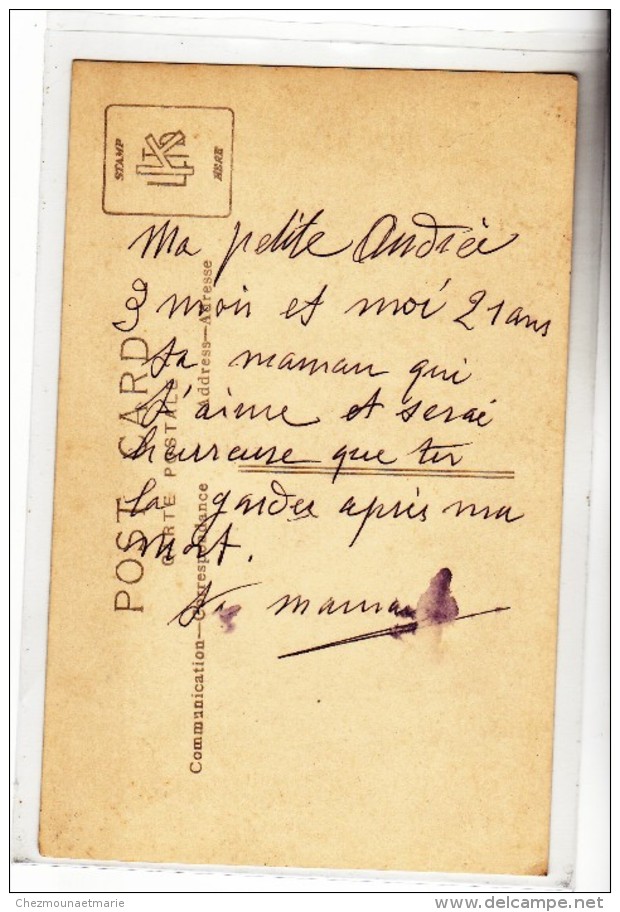 STAMP
HERE
LTKD
Ma petite Andrée
3 mois et moi 21 ans
ta maman qui
t'aime et serai
heureuse que tu
la gardee après ma
mort.
Ta maman
POST CARD
CARTE POSTALE
Communication—Correspondance
Address—Adresse
Chezmounaetmarie
www.delcampe.net